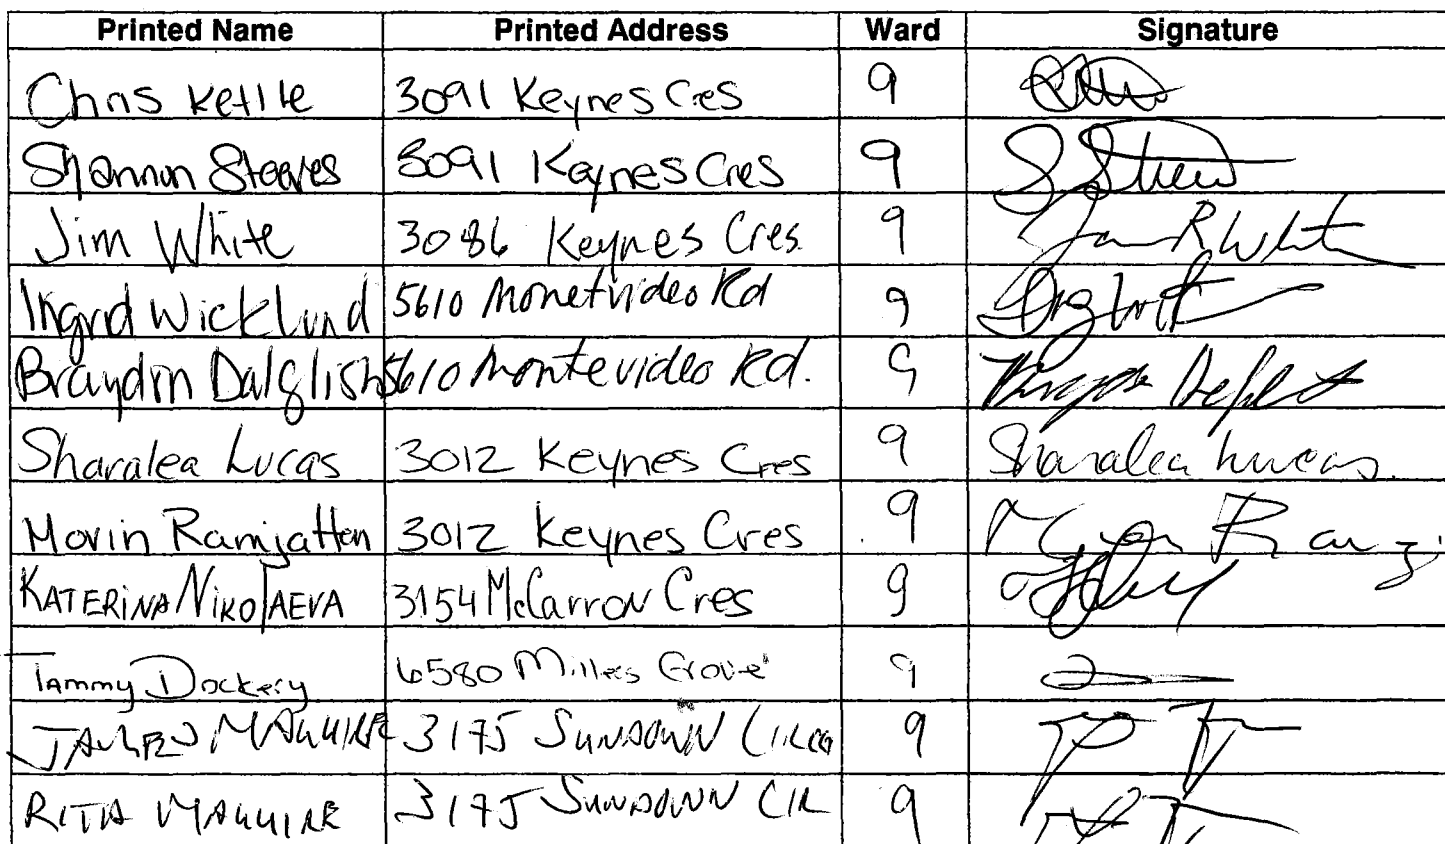 Printed Name Printed Address Ward Signature
Chris Kettle 3091 Keynes Cres 9
Shannon Steeves 3091 Keynes Cres 9
Jim White 3086 Keynes Cres. 9
Ingrid Wicklund 5610 Monetvideo Rd 9
Braydon Dalglish 5610 Montevideo Rd. 9
Sharalea Lucas 3012 Keynes Cres 9 Sharalea Lucas.
Movin Ramjattan 3012 Keynes Cres 9
KATERINA NIKOLAEVA 3154 McCarron Cres 9
Tammy Dockery 6580 Millers Grove 9
JAMES MAGUIRE 3175 SUNDOWN 9
RITA MAGUIRE 3175 SUNDOWN CIR 9